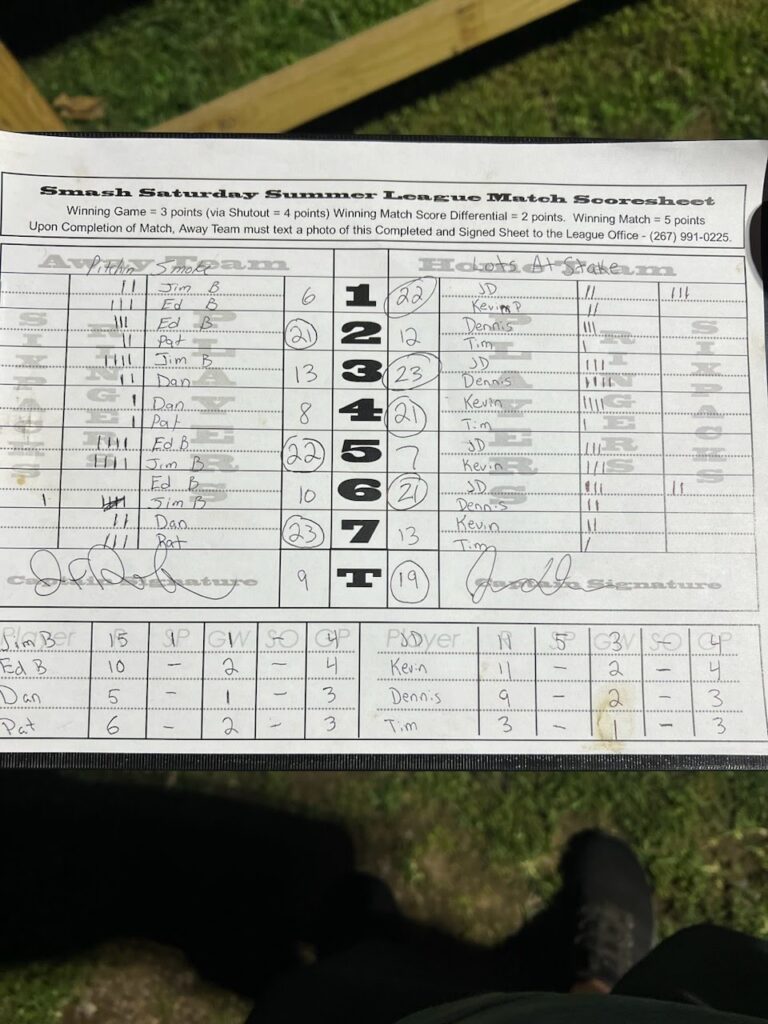 Smash Saturday Summer League Match Scoresheet
Winning Game = 3 points (via Shutout = 4 points) Winning Match Score Differential = 2 points. Winning Match = 5 points
Upon Completion of Match, Away Team must text a photo of this Completed and Signed Sheet to the League Office - (267) 991-0225.
Away Team Pitchin Smoke Home Team Lots At Stake
SIXPACKS RINGERS PLAYERS PLAYERS RINGERS SIXPACKS
Jim B 6 1 22 JD
Ed B Kevin P
Ed B 21 2 12 Dennis
Pat Tim
Jim B 13 3 23 JD
Dan Dennis
Dan 8 4 21 Kevin
Pat Tim
Ed B 22 5 7 JD
Jim B Kevin
Ed B 10 6 21 JD
Jim B Dennis
Dan 23 7 13 Kevin
Pat Tim
Captain Signature 9 T 19 Captain Signature
Player R SP GW SO GP Player R SP GW SO GP
Jim B 15 1 1 - 4 JD 5 3 - 4
Ed B 10 - 2 - 4 Kevin 11 - 2 - 4
Dan 5 - 1 - 3 Dennis 9 - 2 - 3
Pat 6 - 2 - 3 Tim 3 - 1 - 3